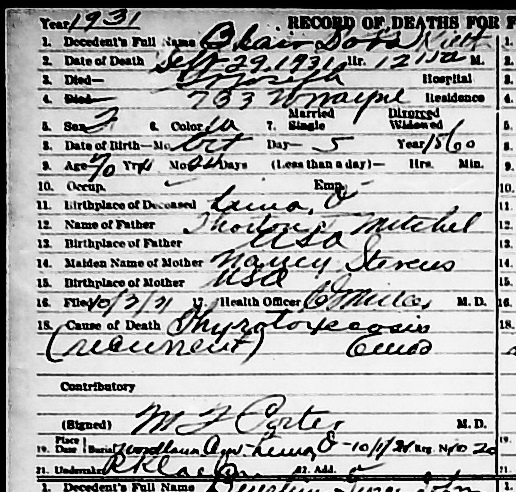 Year 1931 RECORD OF DEATHS FOR F
1. Decedent's Full Name Blair Dora Keith
2. Date of Death Sept 29, 1931 Hr. 12 M.
3. Died— St Joseph Hospital
4. Died— 733 W Wayne Residence
5. Sex F 6. Color W 7. Married Single Divorced Widowed
8. Date of Birth—Mo. Oct Day— 5 Year 1860
9. Age 70 Yrs. Mo. Days (Less than a day)— Hrs. Min.
10. Occup. Emp.
11. Birthplace of Deceased Lima, O
12. Name of Father Mitchel
13. Birthplace of Father USA
14. Maiden Name of Mother Nancy Stevens
15. Birthplace of Mother USA
16. Filed 10/2/31 17. Health Officer M. D.
18. Cause of Death Thyrotoxicosis
(recurrent)
Contributory
(Signed) M F Porter M. D.
19. Place Date Burial Woodlawn Lima, O Reg. No.
21. Undertaker 22. Add.
1. Decedent's Full Name John
1.
2.
3.
4.
5.
8.
9.
10.
11.
12.
13.
14.
15.
16.
18.
19.
21.
1.